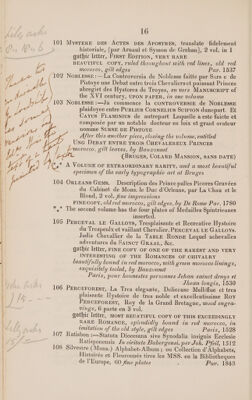 16
101 MYSTERE DES ACTES DES APOSTRES, translate fidelement
historiale, (par Arnaul et Symon de Greban), 2 vol. in 1
gothic letter, FIRST EDITION, VERY RARE
BEAUTIFUL COPY, ruled throughout with red lines, old red
morocco, gilt edges Par. 1537
102 NOBLESSE:—La Controversie de Noblesse faitte par Surs e de
Pistoye une Debat entre trois Chevalereyst puissant Princes
abregiet des Hystores de Troyes, en MANUSCRIPT of
the XVI century, UPON PAPER, in one volume
103 NOBLESSE:—Ju commence la CONTROVERSIE DE NOBLESSE
plaidoyee entre PUBLIES CORNELIUS SCIPION dunepart. Et
CAYUS FLAMINIUS de autrepart Laquelle a este faicte et
composée par un notable docteur en loix et grand orateur
nomme SURSE DE PISTOYE.
After this another piece, closing the volume, entitled
UNG DEBAT ENTRE TROIS CHEVALEREUX PRINCES
morocco, gilt leaves, by Bauzonnet
(BRUGES, COLARD MANSION, SANS DATE)
A VOLUME OF EXTRAORDINARY RARITY, and a most beautiful
specimen of the early typographic art at Bruges
104 ORLEANS GEMS. Description des Princ palles Pierres Gravées
du Cabinet de Mons. le Duc d'Orleans, par La Chau et le
Blond, 2 vol. fine impressions
FINE COPY, old red morocco, gilt edges, by De Rome Par. 1780
The second volume has the four plates of Medailles Spintriennes
inserted.
105 PERCEVAL LE GALLOYS, Tresplaisante et Recreative Hystoire
du Trespreulx et vaillant Chevallier PERCEVAL LE GALLOYS.
Jadis Chevallier de la TABLE RONDE Lequel acheva les
adventures du SAINCT GRAAL, &c.
gothic letter, FINE COPY OF ONE OF THE RAREST AND VERY
INTERESTING OF THE ROMANCES OF CHIVALRY
beautifully bound in red morocco, with green morocco linings,
exquisitely tooled, by Bauzonnet
Paris, pour honnestes personnes Jehan sainct denys et
Jhean longis, 1530
106 PERCEFOREST, La Tres elegante, Delicieuse Melliflue et tres
plaisante Hystoire de tres noble et excellentissime Roy
PERCEFOREST, Roy de la Grand Bretagne, wood engravings,
6 parts in 3 vol.
gothic letter, MOST BEAUTIFUL COPY OF THIS EXCEEDINGLY
RARE ROMANCE, splendidly bound in red morocco, in
imitation of the old style, gilt edges Paris, 1528
107 Ratisbon:—Statuta Diocesana sive Synodalia insignis Ecclesie
Ratisponensis In civitate Babergensi. per Joh. Pfeil, 1512
108 Silvestre (Mons.) Alphabet-Album; ou Collection d'Alphabets,
Historiés et Fleuronnés tires les MSS. en la Bibliotheques
de l'Europe, 60 fine plates Par. 1843